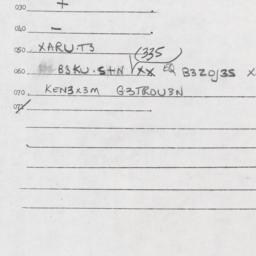 030 +
040 -
050 XARU.T3
(335)
060 B3KU.S+N XX EQ B3ZOJ3S X
070 KEN3X3M G3TROU3N
072